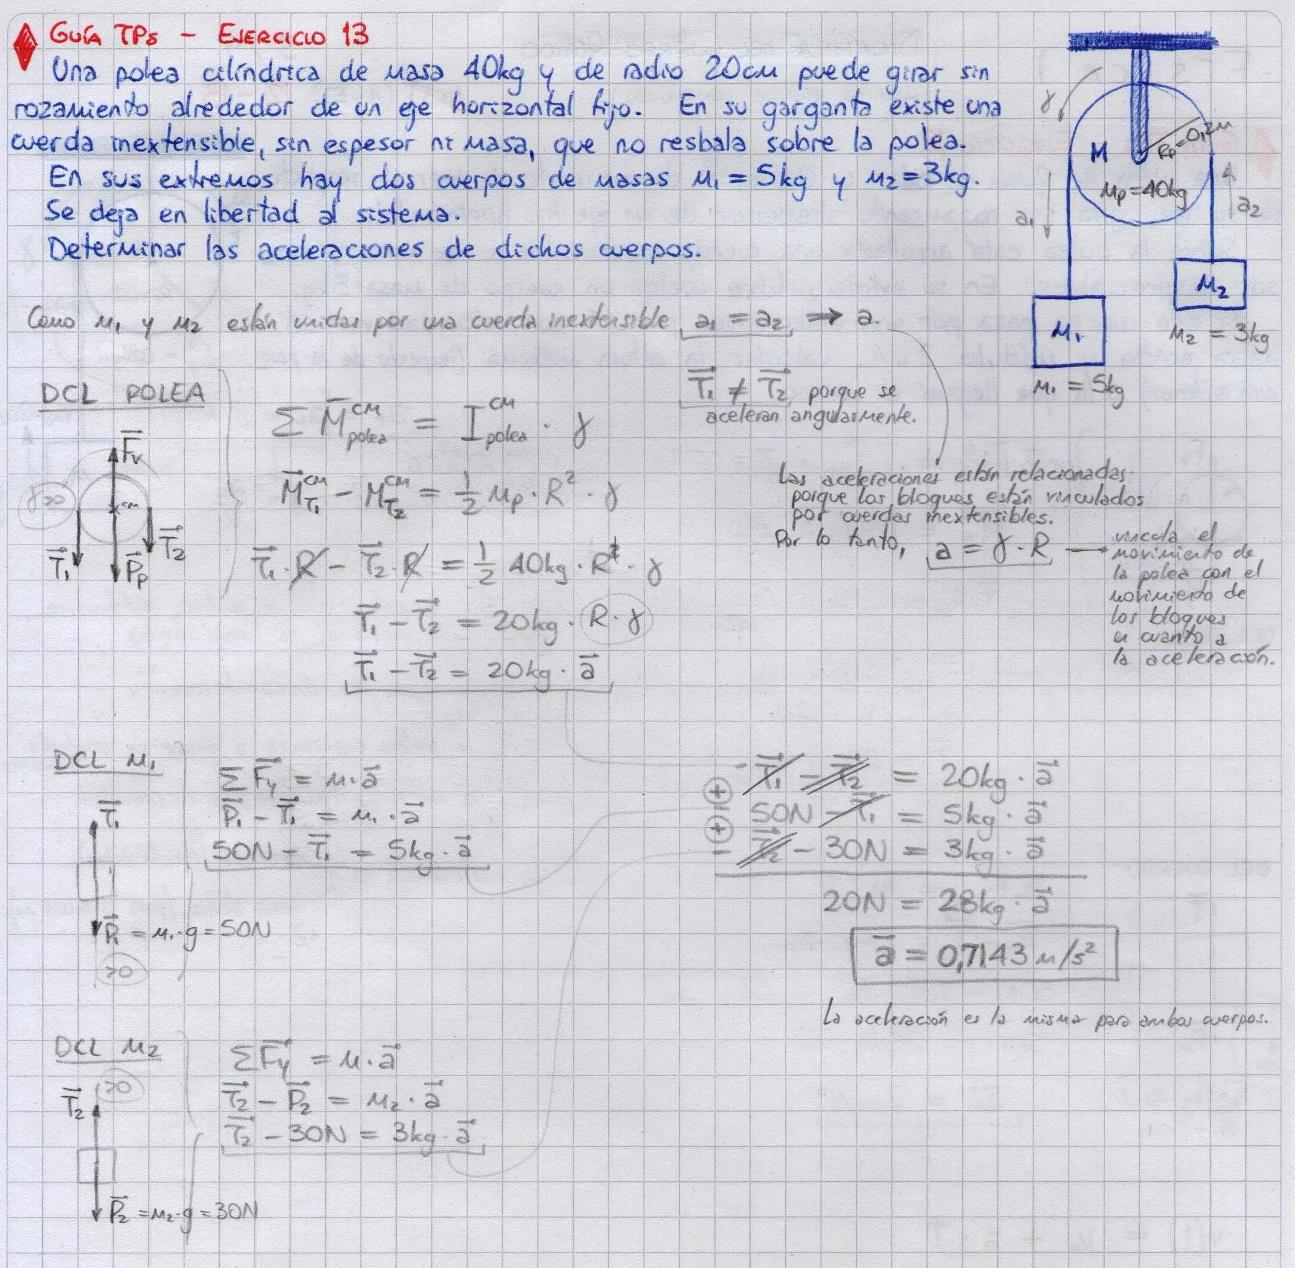 GUÍA TPs - EJERCICIO 13
Una polea cilíndrica de masa 40kg y de radio 20cm puede girar sin
rozamiento alrededor de un eje horizontal fijo. En su garganta existe una
cuerda inextensible, sin espesor ni masa, que no resbala sobre la polea.
En sus extremos hay dos cuerpos de masas M₁ = 5kg y M₂ = 3kg.
Se deja en libertad al sistema.
Determinar las aceleraciones de dichos cuerpos.
γ
M
Rp=0,2m
Mp=40kg
a₁
a₂
M₁
M₂
M₁ = 5kg
M₂ = 3kg
Como M₁ y M₂ están unidas por una cuerda inextensible a₁ = a₂ ⇒ a.
T₁ ≠ T₂ porque se
aceleran angularmente.
Las aceleraciones están relacionadas
porque los bloques están vinculados
por cuerdas inextensibles.
Por lo tanto, a = γ·R → vincula el
movimiento de
la polea con el
movimiento de
los bloques
en cuanto a
la aceleración.
DCL POLEA
Fv
γ>0
cm
T₁
Pp
T₂
Σ M̄ᶜᴹpolea = Iᶜᴹpolea · γ
M̄ᶜᴹT₁ - M̄ᶜᴹT₂ = 1/2 Mp·R²·γ
T₁·R - T₂·R = 1/2 40kg·R²·γ
T₁ - T₂ = 20kg·R·γ
T₁ - T₂ = 20kg·a
DCL M₁
T₁
P₁ = M₁·g = 50N
>0
ΣFy = M·a
P₁ - T₁ = M₁·a
50N - T₁ = 5kg·a
T₁ - T₂ = 20kg·a
+
50N - T₁ = 5kg·a
+
T₂ - 30N = 3kg·a
20N = 28kg·a
a = 0,7143 m/s²
La aceleración es la misma para ambos cuerpos.
DCL M₂
T₂
>0
P₂ = M₂·g = 30N
ΣFy = M·a
T₂ - P₂ = M₂·a
T₂ - 30N = 3kg·a